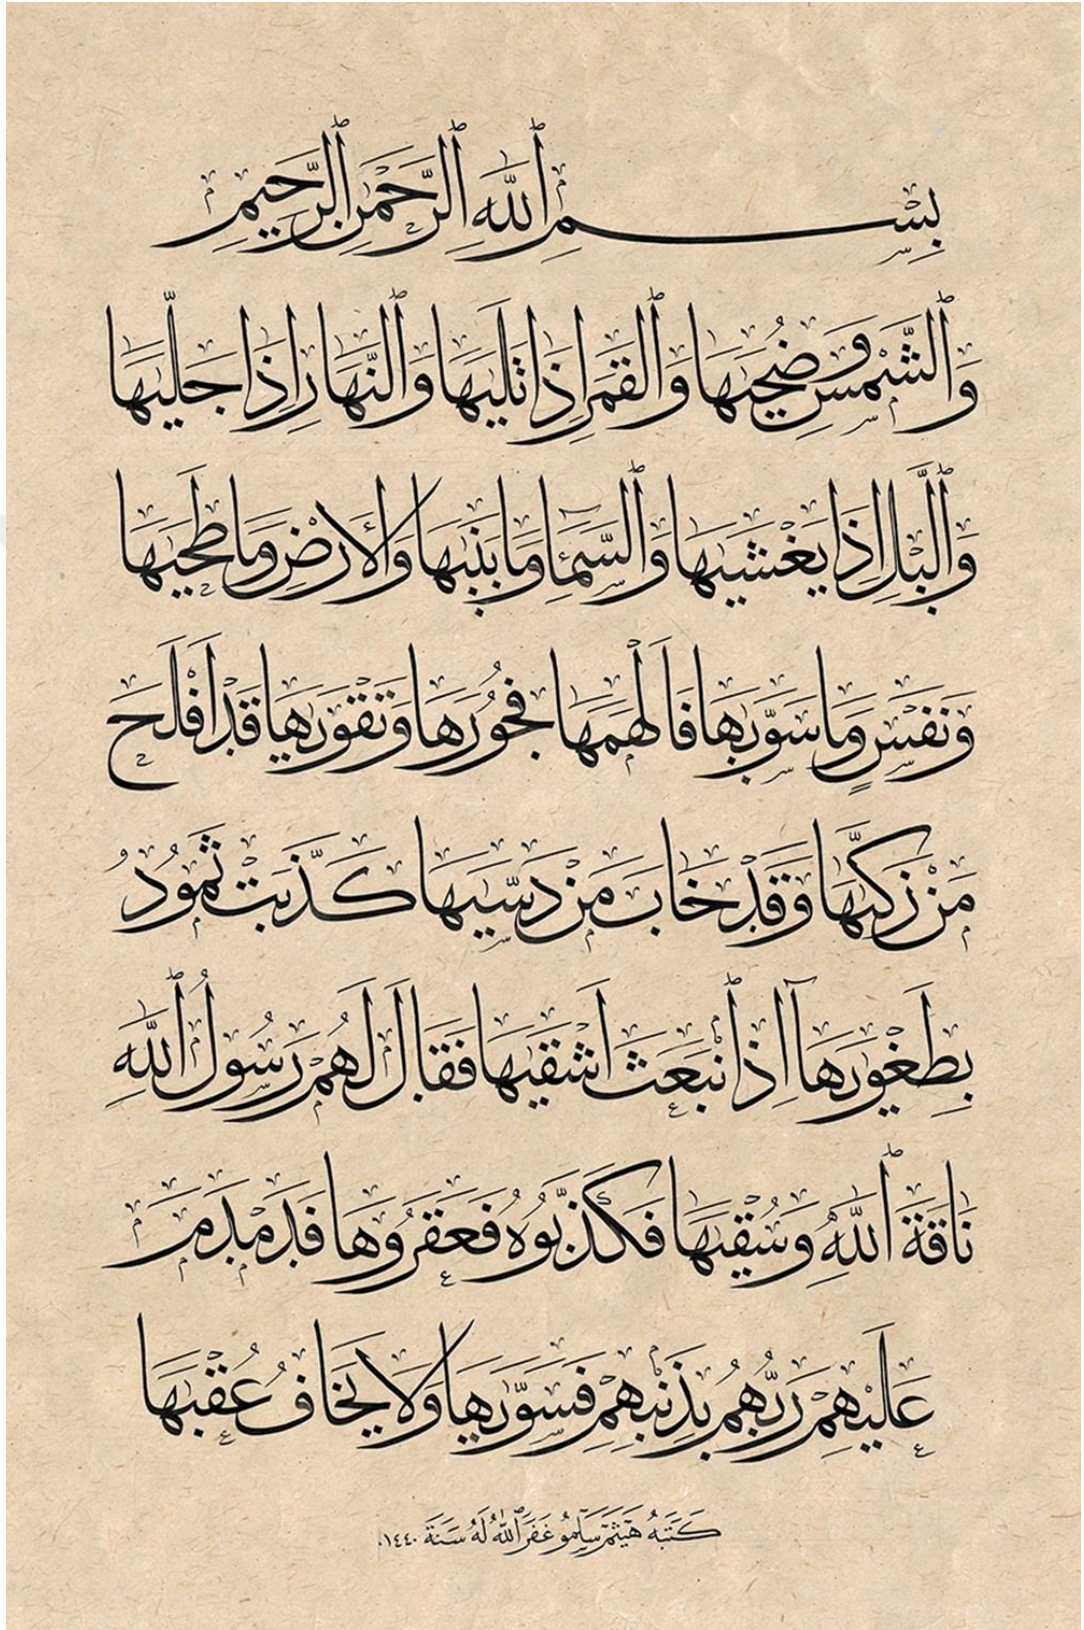 بِسْمِ ٱللَّهِ ٱلرَّحْمٰنِ ٱلرَّحِيمِ
وَٱلشَّمْسِ وَضُحٰىهَا وَٱلْقَمَرِ اِذَا تَلٰيهَا وَٱلنَّهَارِ اِذَا جَلّٰيهَا
وَٱلَّيْلِ اِذَا يَغْشٰيهَا وَٱلسَّمَٓاءِ وَمَا بَنٰيهَا وَالْاَرْضِ وَمَا طَحٰيهَا
وَنَفْسٍ وَمَا سَوّٰيهَا فَاَلْهَمَهَا فُجُورَهَا وَتَقْوٰيهَا قَدْ اَفْلَحَ
مَنْ زَكّٰيهَا وَقَدْ خَابَ مَنْ دَسّٰيهَا كَذَّبَتْ ثَمُودُ
بِطَغْوٰيهَآ اِذِ ٱنْبَعَثَ اَشْقٰيهَا فَقَالَ لَهُمْ رَسُولُ ٱللَّهِ
نَاقَةَ ٱللَّهِ وَسُقْيٰهَا فَكَذَّبُوهُ فَعَقَرُوهَا فَدَمْدَمَ
عَلَيْهِمْ رَبُّهُمْ بِذَنْبِهِمْ فَسَوّٰيهَا وَلَا يَخَافُ عُقْبٰيهَا
كَتَبَهُ هَيْثَم سَلْمُو غَفَرَ ٱللَّهُ لَهُ سَنَةَ ١٤٤٠